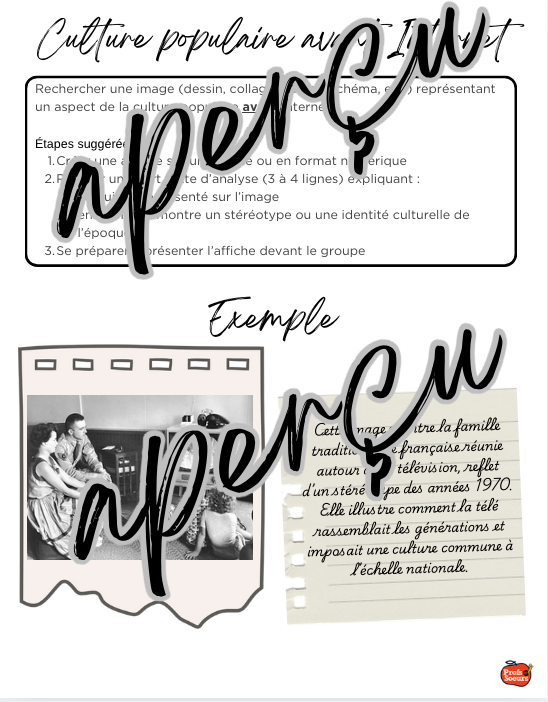 Culture populaire avant Internet
Rechercher une image (dessin, schéma, représentant
un aspect de la culture
Étapes suggérées
1. une ou en format numérique
2. un d'analyse (3 à 4 lignes) expliquant :
sur l'image
montre un stéréotype ou une identité culturelle de
l'époque
3. Se préparer présenter l'affiche devant le groupe
aperçu
Exemple
Cette image montre la famille
française réunie
autour télévision, reflet
d'un des années 1970.
Elle illustre comment la télé
rassemblait les générations et
imposait une culture commune à
l'échelle nationale.
aperçu
Profs
Soeurs